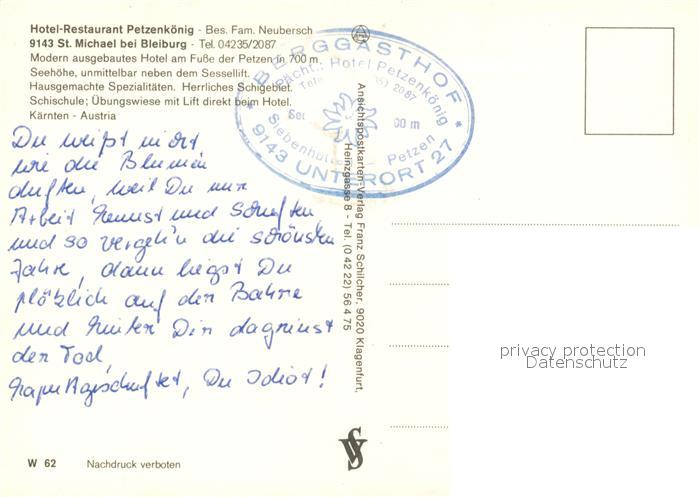 Hotel-Restaurant Petzenkönig - Bes. Fam. Neubersch
9143 St. Michael bei Bleiburg - Tel. 04235/2087
Modern ausgebautes Hotel am Fuße der Petzen in 700 m
Seehöhe, unmittelbar neben dem Sessellift.
Hausgemachte Spezialitäten. Herrliches Schigebiet.
Schischule; Übungswiese mit Lift direkt beim Hotel.
Kärnten - Austria
BERGGASTHOF
Pächt.: Hotel Petzenkönig
2087
00 m
Siebenhütt
Petzen
9143 UNTERORT 27
Du weißt nicht
wie die Blumen
duften, weil Du nur
Arbeit kennst und Schuften
und so vergeh'n die schönsten
Jahre, dann liegst Du
plötzlich auf der Bahre
und hinter Dir da grinst
der Tod,
Du Idiot!
Ansichtspostkarten-Verlag Franz Schilcher, 9020 Klagenfurt,
Heinzgasse 8 - Tel. (0 42 22) 56 4 75
privacy protection
Datenschutz
W 62 Nachdruck verboten